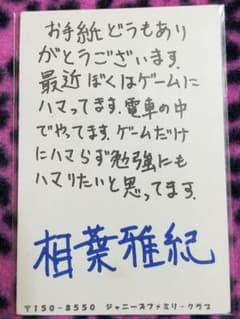 お手紙どうもあり
がとうございます.
最近ぼくはゲームに
ハマってます.電車の中
でやってます.ゲームだけ
にハマらず勉強にも
ハマりたいと思ってます.
相葉雅紀
〒150-8550 ジャニーズファミリークラブ